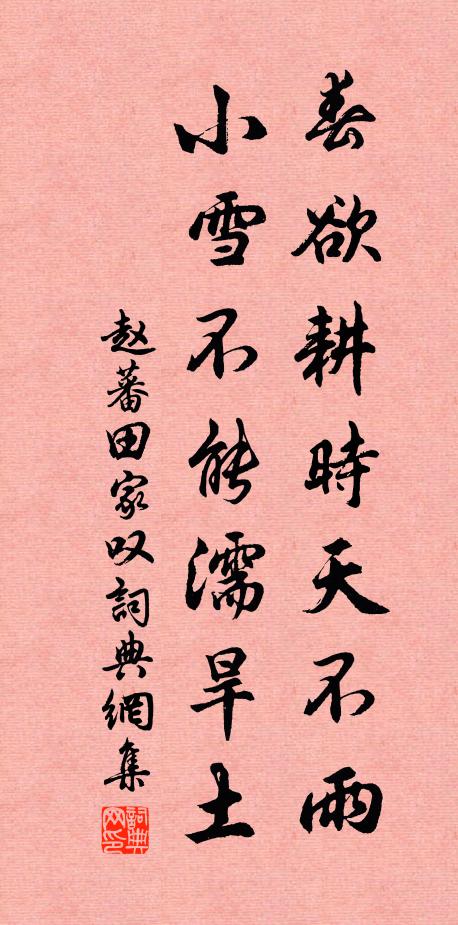 春欲耕時天不雨
小雪不能濡旱土
赵蕃田家叹詞典網集
詞典网印